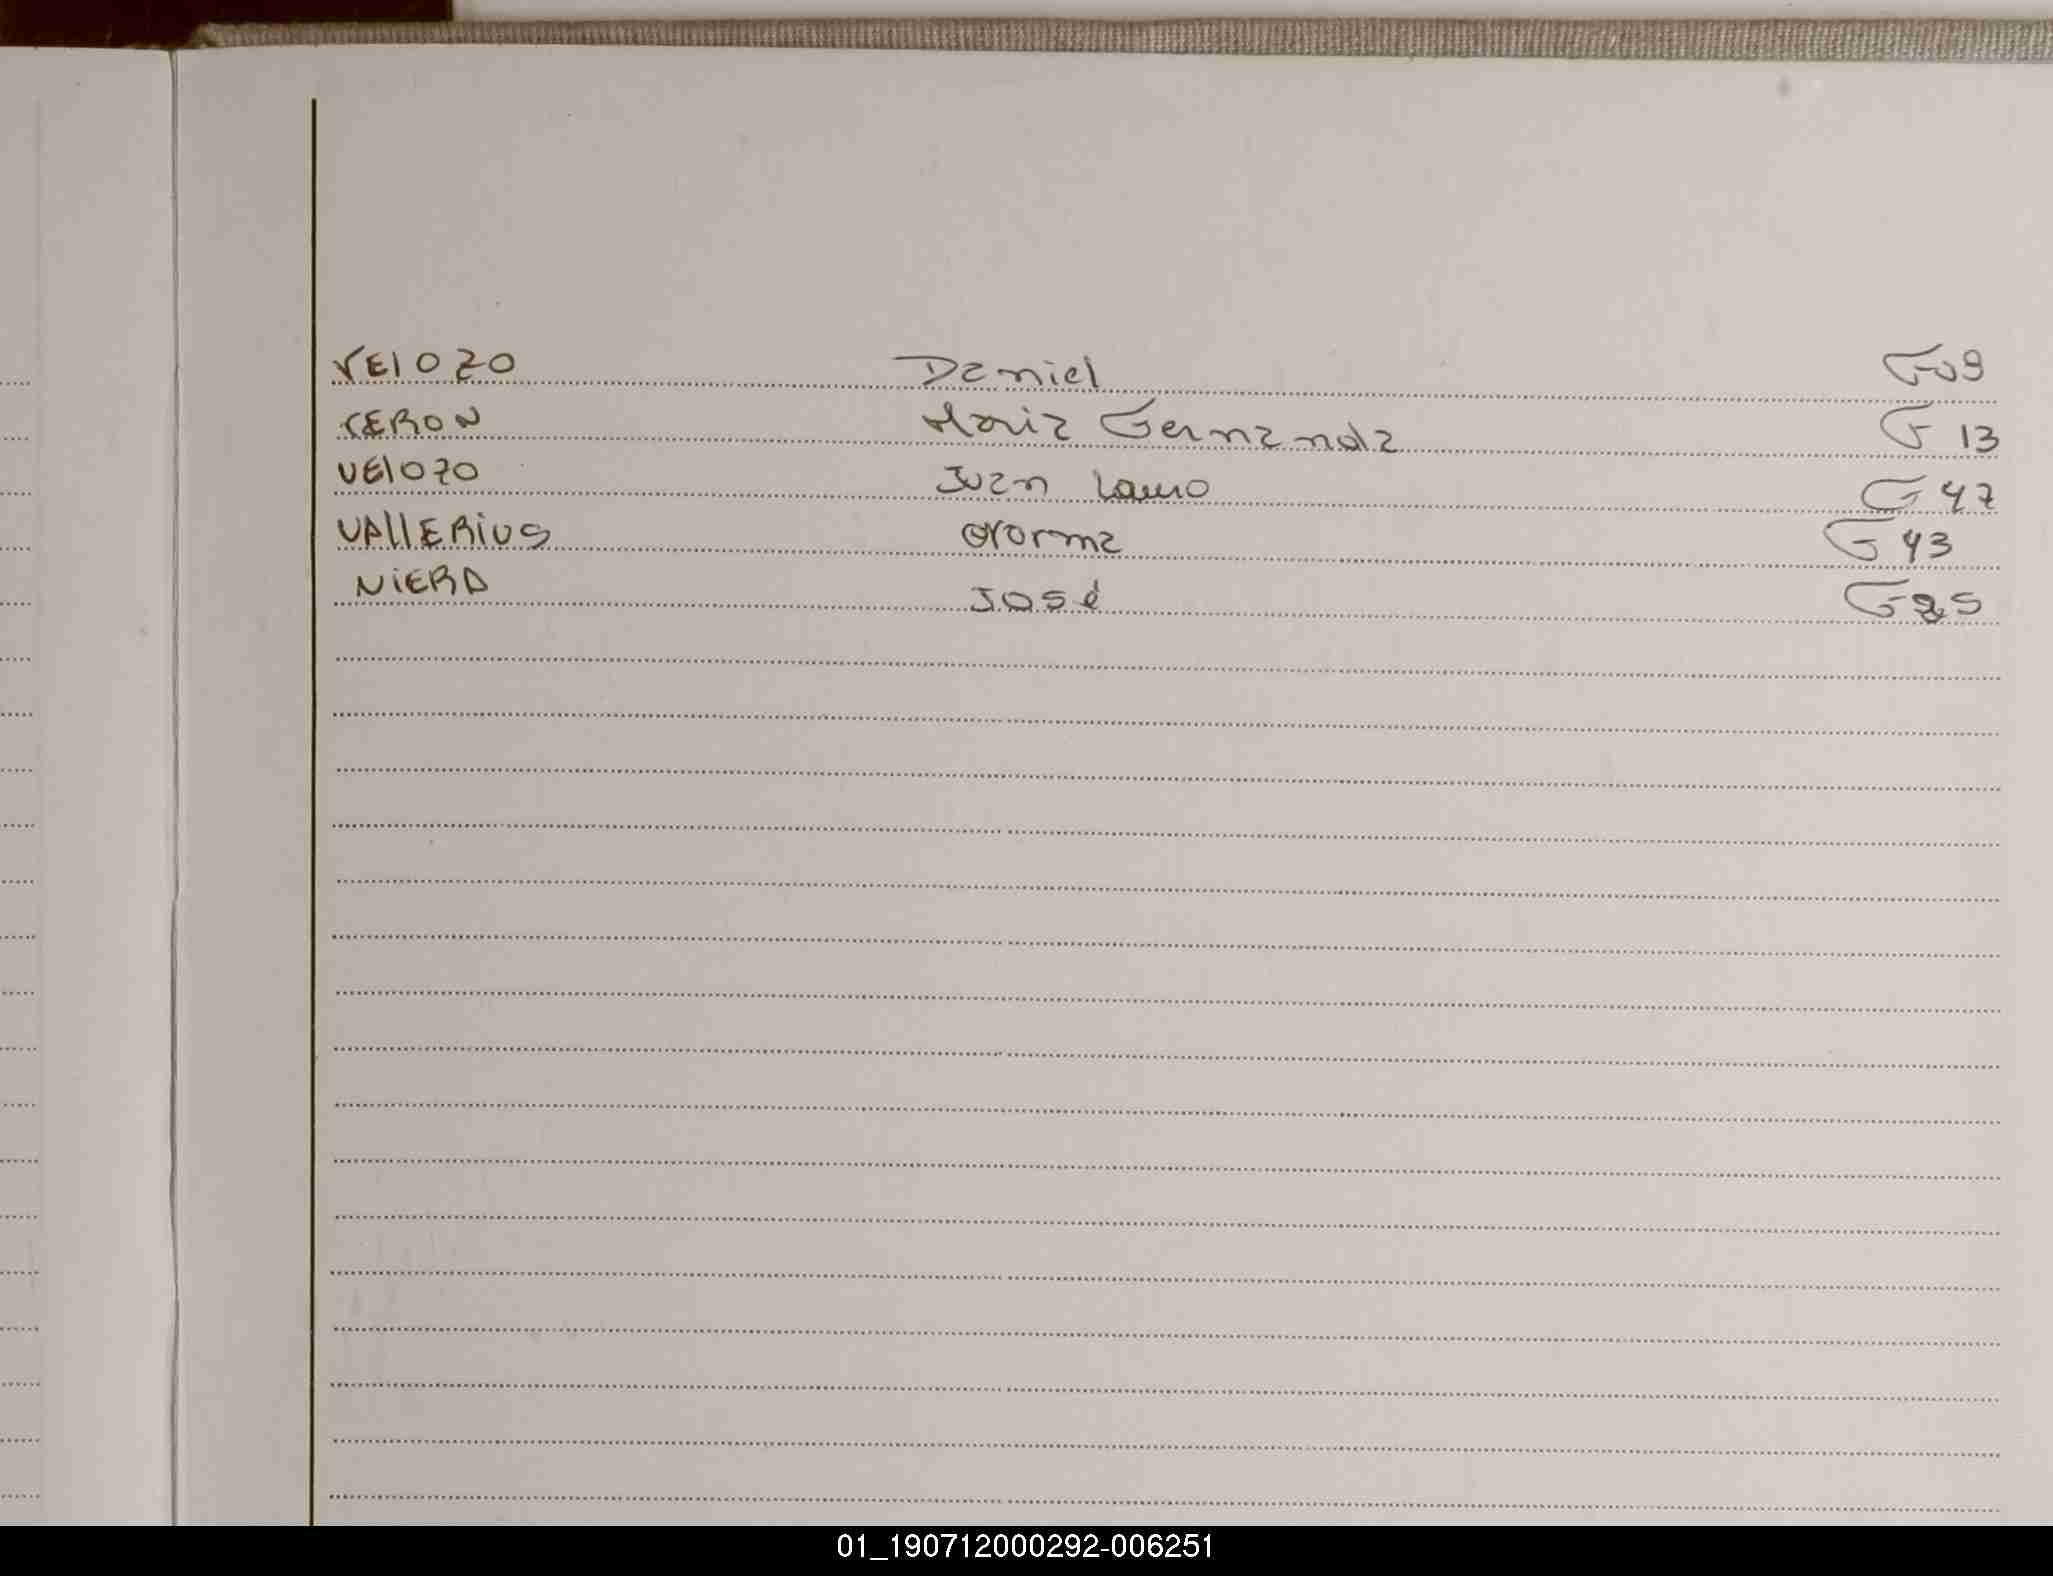 VElozo Daniel F09
CERON Maria Fernanda F 13
VElozo Juan Lauro F 47
VAllERiUS Norma F 43
NiERA José F 25
01_190712000292-006251